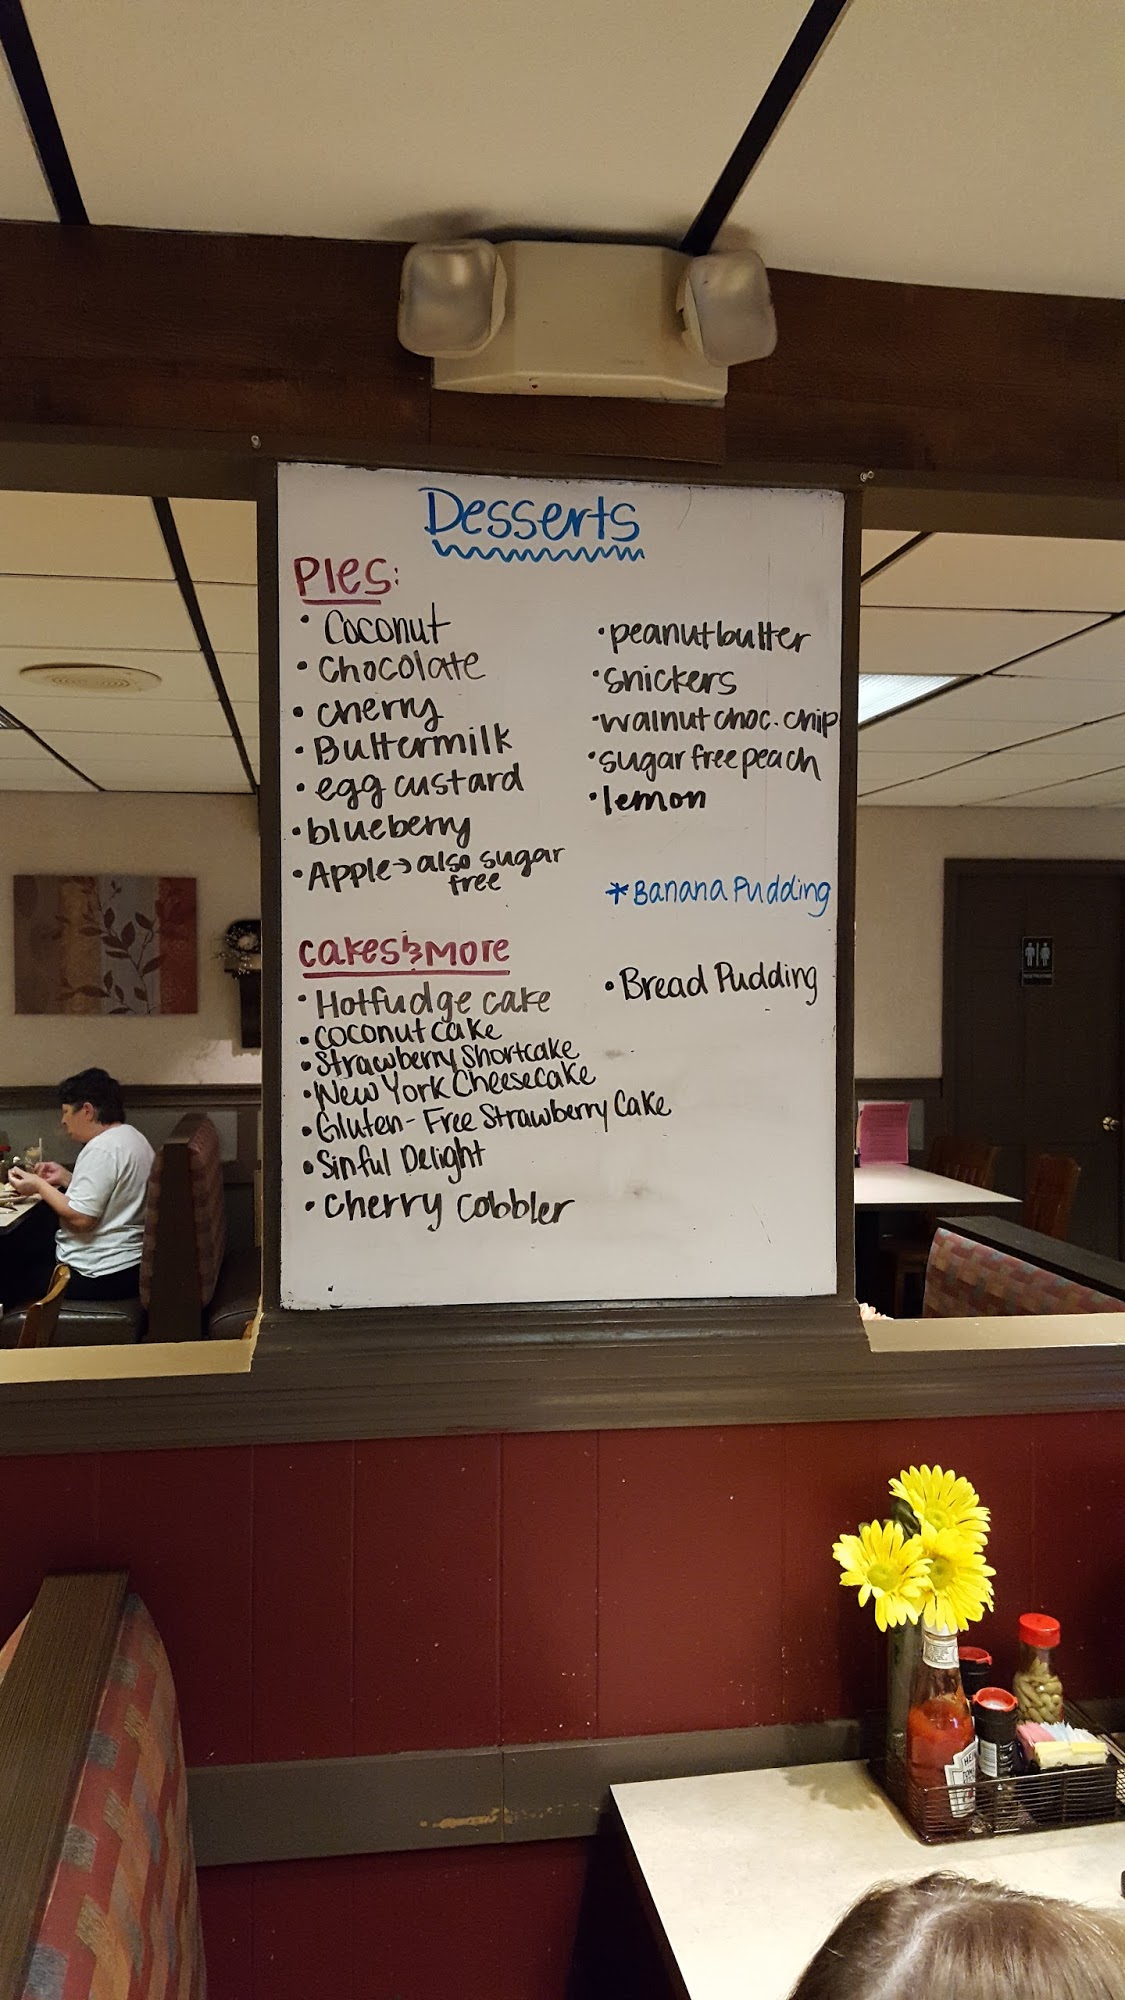 Desserts
PIES:
• Coconut
• Chocolate
• cherry
• Buttermilk
• egg custard
• blueberry
• Apple → also sugar
free
• peanut butter
• snickers
• walnut choc. chip
• sugar free peach
• lemon
* Banana Pudding
cakes & more
• Hot fudge cake
• coconut cake
• Strawberry Shortcake
• New York Cheesecake
• Gluten-Free Strawberry Cake
• Sinful Delight
• Cherry Cobbler
• Bread Pudding